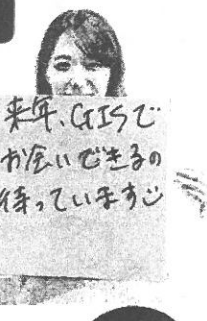 来年、GISで
お会いできるの
待っています